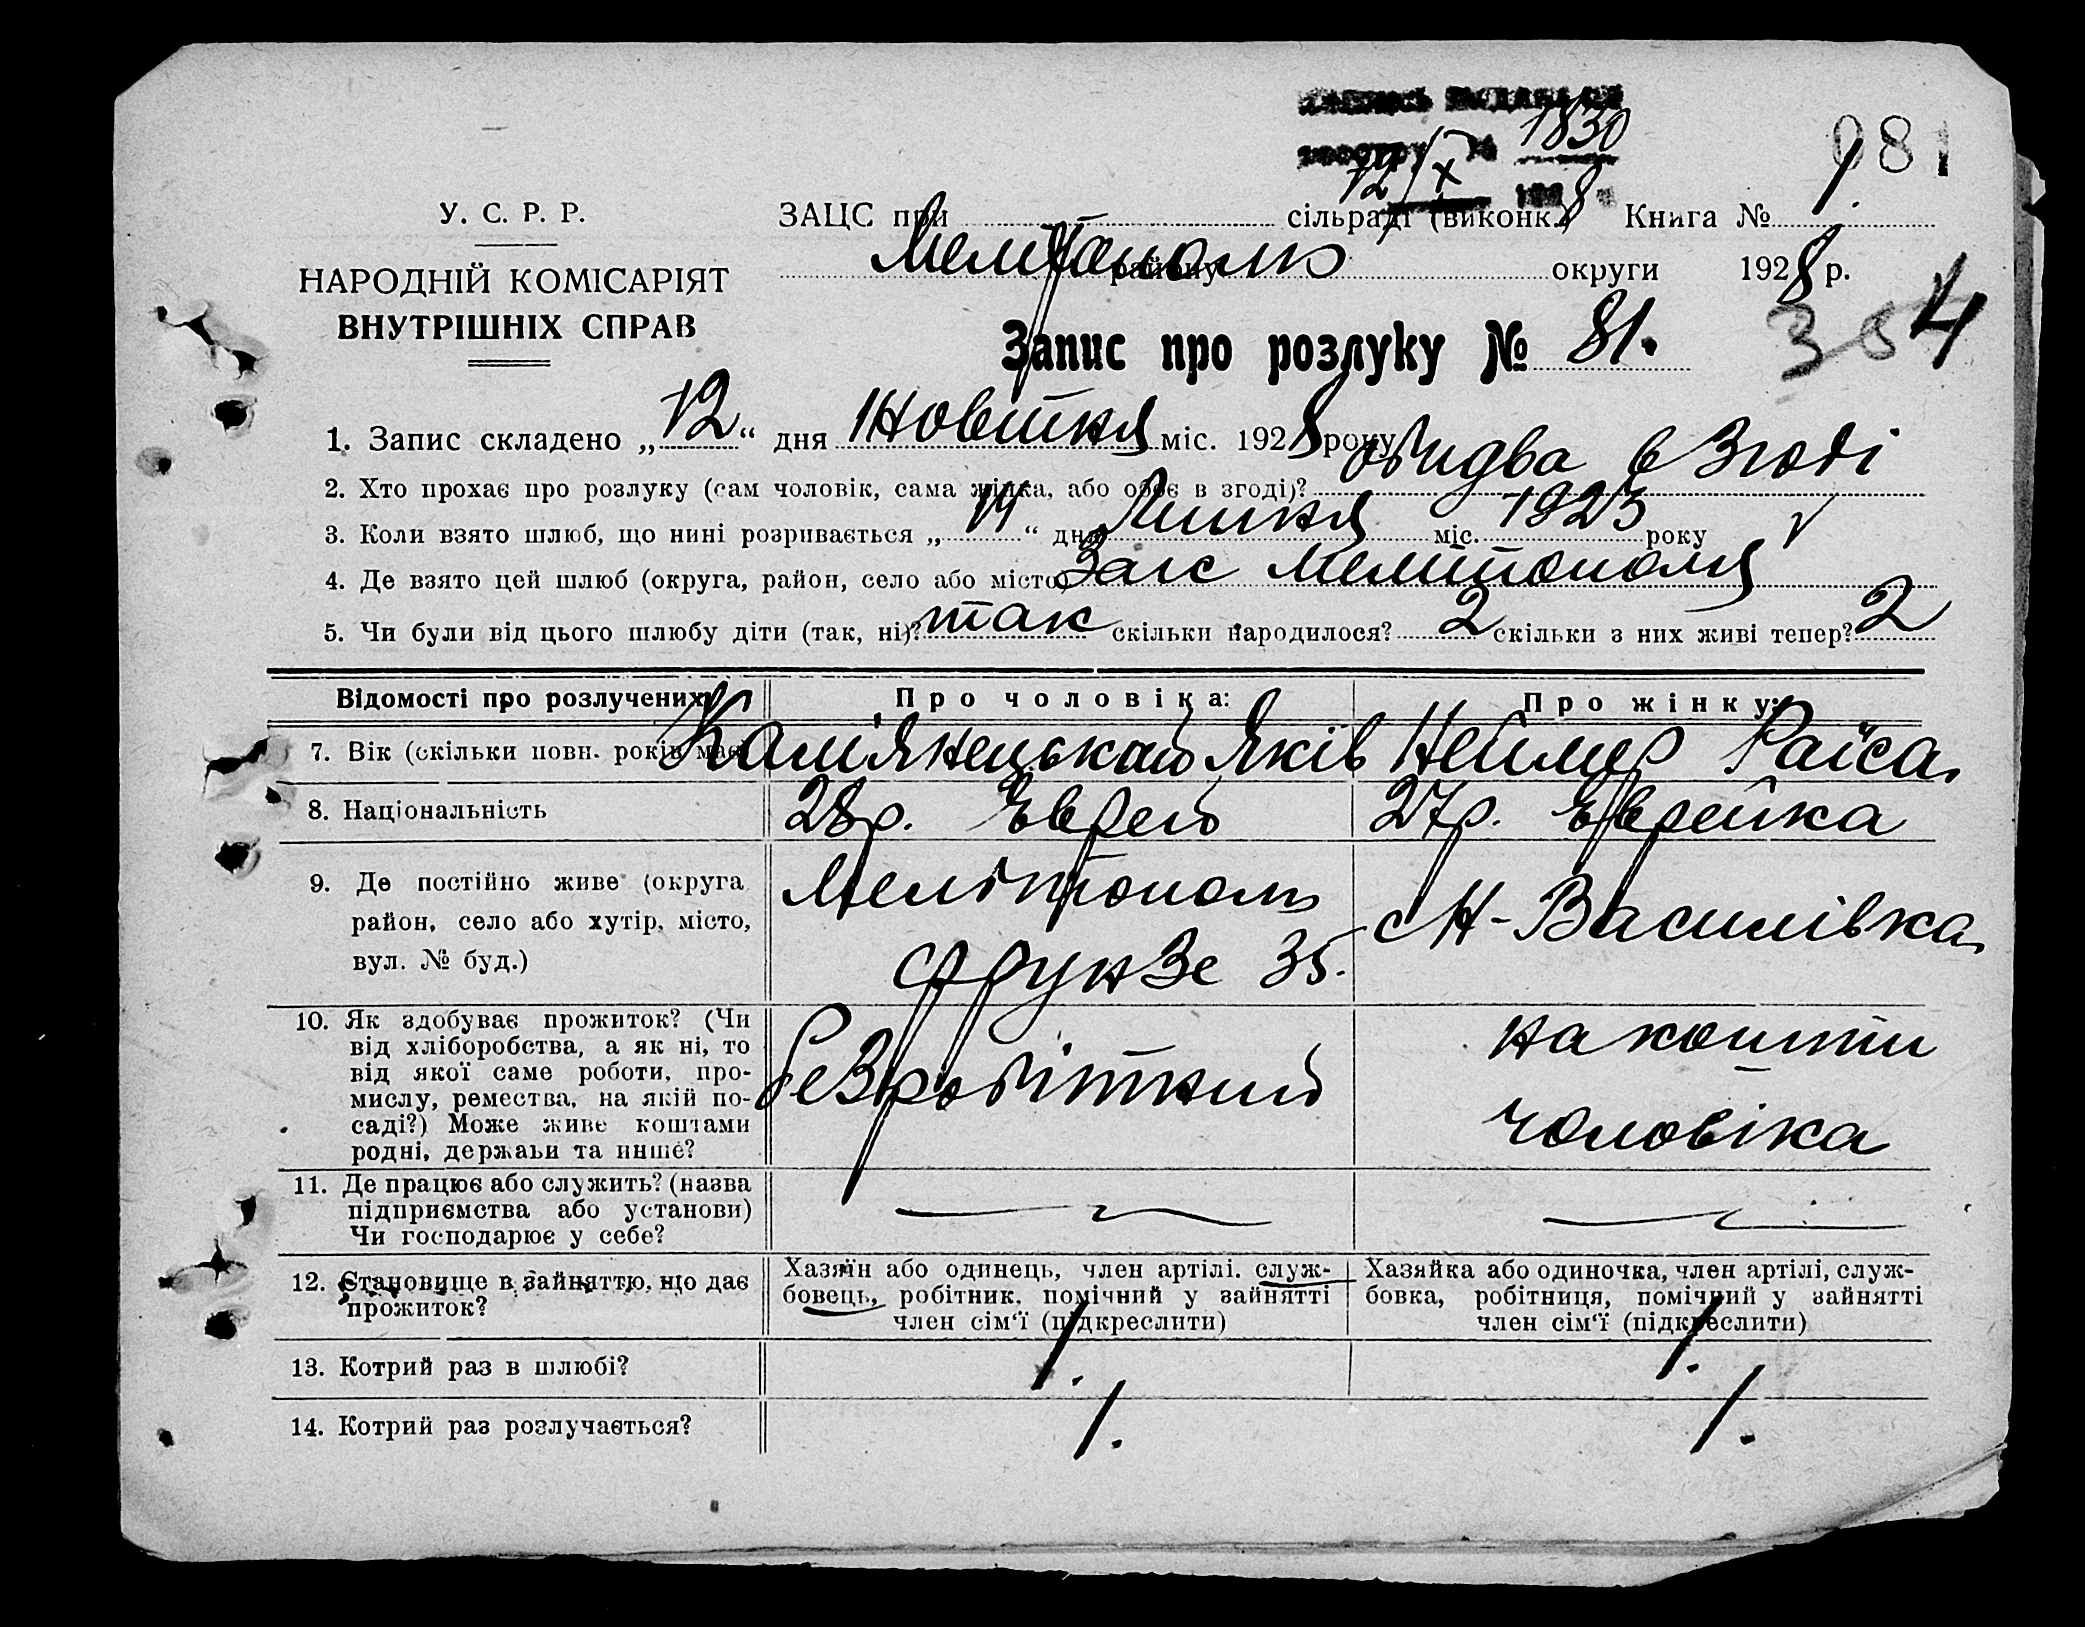 1830
12/X 8
081
У. С. Р. Р.
НАРОДНІЙ КОМІСАРІЯТ
ВНУТРІШНІХ СПРАВ
ЗАЦС при сільраді (виконк.) Книга № 1.
Мелітополь району округи 1928 р.
Запис про розлуку № 81.
4
1. Запис складено „12“ дня Жовтня міс. 1928 року
2. Хто прохає про розлуку (сам чоловік, сама жінка, або обоє в згоді)? обидва в згоді
3. Коли взято шлюб, що нині розривається „14“ дня Липня міс. 1923 року
4. Де взято цей шлюб (округа, район, село або місто) Загс Мелітополя
5. Чи були від цього шлюбу діти (так, ні)? так скільки народилося? 2 скільки з них живі тепер? 2
Відомості про розлучених Про чоловіка: Про жінку:
7. Вік (скільки повн. років має) Кам'янецький Яків Неймер Раїса
8. Національність 28 р. Єврей 27 р. Єврейка
9. Де постійно живе (округа
район, село або хутір, місто,
вул. № буд.)
Мелітополь
Фрунзе 35.
с Н-Василівка
10. Як здобуває прожиток? (Чи
від хліборобства, а як ні, то
від якої саме роботи, про-
мислу, ремества, на якій по-
саді?) Може живе коштами
родні, держави та инше?
безробітний
на кошти
чоловіка
11. Де працює або служить? (назва
підприємства або установи)
Чи господарює у себе?
12. Становище в зайняттю, що дає
прожиток?
Хазяїн або одинець, член артілі, служ-
бовець, робітник, помічний у зайнятті
член сім'ї (підкреслити)
Хазяйка або одиночка, член артілі, служ-
бовка, робітниця, помічний у зайнятті
член сім'ї (підкреслити)
13. Котрий раз в шлюбі? 1. 1.
14. Котрий раз розлучається? 1. 1.